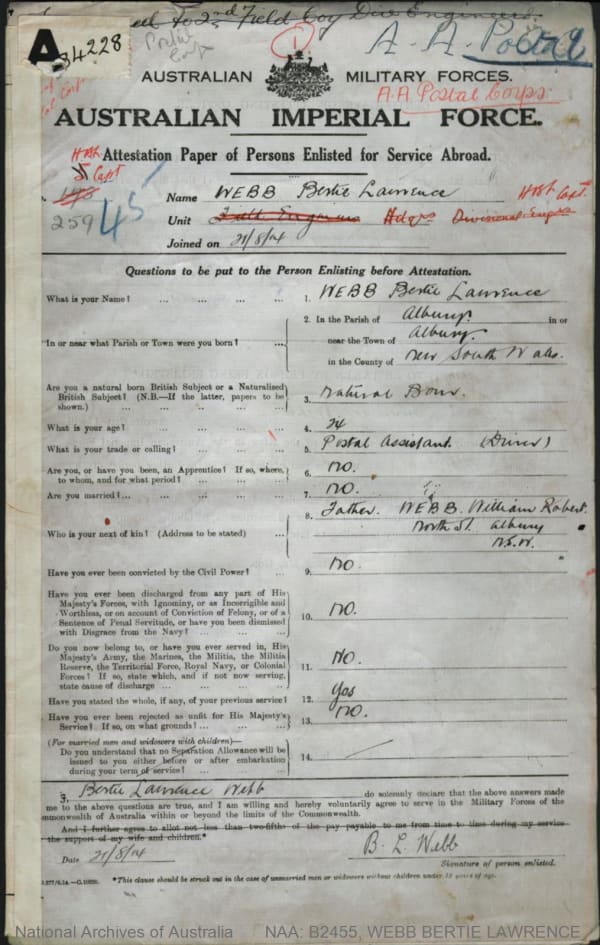 to 2nd Field Coy Div Engineers.
A
34228
Postal Corps
1
A. A. Postal
AUSTRALIAN MILITARY FORCES.
A.A. Postal Corps
AUSTRALIAN IMPERIAL FORCE.
Attestation Paper of Persons Enlisted for Service Abroad.
259
45
Name WEBB Bertie Lawrence
Unit Field Engineers Hdqrs Divisional Engrs
Joined on 21/8/14
Questions to be put to the Person Enlisting before Attestation.
What is your Name? ... ... ... ... 1. WEBB Bertie Lawrence
In or near what Parish or Town were you born? ... ... 2. In the Parish of Albury. in or
near the Town of Albury.
in the County of New South Wales.
Are you a natural born British Subject or a Naturalised
British Subject? (N.B.—If the latter, papers to be
shown.) ... ... ... ... ... 3. Natural Born.
What is your age? ... ... ... ... 4. 24
What is your trade or calling? ... ... ... 5. Postal Assistant. (Driver)
Are you, or have you been, an Apprentice? If so, where,
to whom, and for what period? ... ... ... 6. No.
Are you married? ... ... ... ... ... 7. No.
Who is your next of kin? (Address to be stated) ... 8. Father. WEBB. William Robert.
North St. Albury
N.S.W.
Have you ever been convicted by the Civil Power? ... 9. No.
Have you ever been discharged from any part of His
Majesty's Forces, with Ignominy, or as Incorrigible and
Worthless, or on account of Conviction of Felony, or of a
Sentence of Penal Servitude, or have you been dismissed
with Disgrace from the Navy? ... ... ... 10. No.
Do you now belong to, or have you ever served in, His
Majesty's Army, the Marines, the Militia, the Militia
Reserve, the Territorial Force, Royal Navy, or Colonial
Forces? If so, state which, and if not now serving,
state cause of discharge ... ... ... ... 11. No.
Have you stated the whole, if any, of your previous service? 12. Yes
Have you ever been rejected as unfit for His Majesty's
Service? If so, on what grounds? ... ... ... 13. No.
(For married men and widowers with children)—
Do you understand that no Separation Allowance will be
issued to you either before or after embarkation
during your term of service? ... ... ... 14.
I, Bertie Lawrence Webb do solemnly declare that the above answers made
me to the above questions are true, and I am willing and hereby voluntarily agree to serve in the Military Forces of the
mmonwealth of Australia within or beyond the limits of the Commonwealth.
And I further agree to allot not less than two-fifths of the pay payable to me from time to time during my service
the support of my wife and children.*
Date 21/8/14 B. L. Webb
Signature of person enlisted.
*This clause should be struck out in the case of unmarried men or widowers without children under 18 years of age.
National Archives of Australia NAA: B2455, WEBB BERTIE LAWRENCE